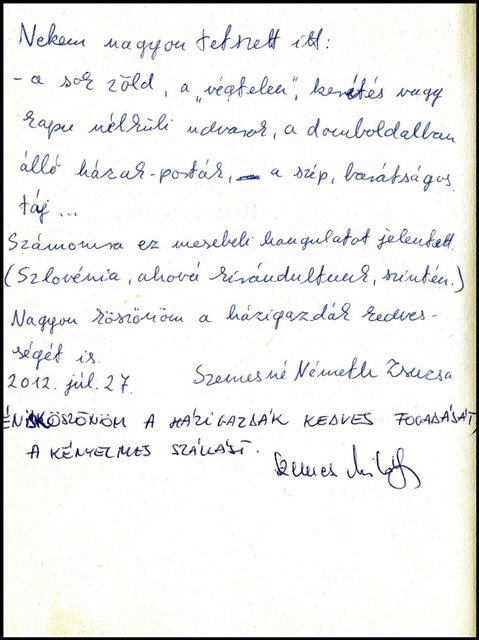 Nekem nagyon tetszett itt:
- a sok zöld, a „végtelen", kerítés vagy
kapu nélküli udvarok, a domboldalban
álló házak-porták, a szép, barátságos
táj...
Számomra ez mesebeli hangulatot jelentett.
(Szlovénia, ahová kirándultunk, szintén.)
Nagyon köszönöm a házigazdák kedves-
ségét is.
2012. júl. 27. Szemesné Németh Zsuzsa
ÉN IS KÖSZÖNÖM A HÁZIGAZDÁK KEDVES FOGADÁSÁT,
A KÉNYELMES SZÁLLÁST.
Szemes